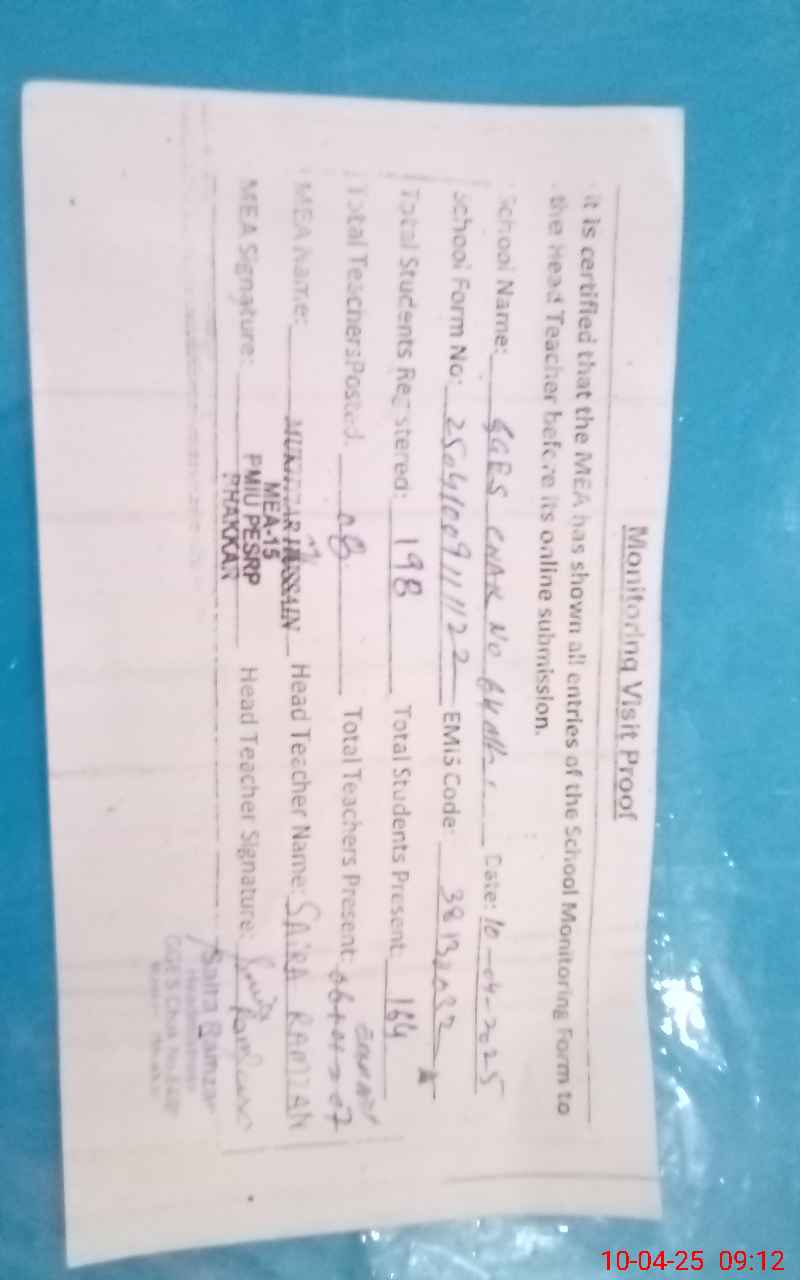 Monitoring Visit Proof
it is certified that the MEA has shown all entries of the School Monitoring Form to
the Head Teacher before its online submission.
School Name: GGES CHAK No 64 Date: 10-04-2025
School Form No: 25041009111122 EMIS Code:
Total Students Registered: 198 Total Students Present: 164
Total Teachers Posted: 08 Total Teachers Present: 06+01=07
MEA Name: HUSSAIN Head Teacher Name: SAIRA RAMZAN
MEA-15
MEA Signature: PMIU PESRP Head Teacher Signature: Saira Ramzan
BHAKKAR
Saira Ramzan
Headmistress
GGES Chak No.
10-04-25 09:12